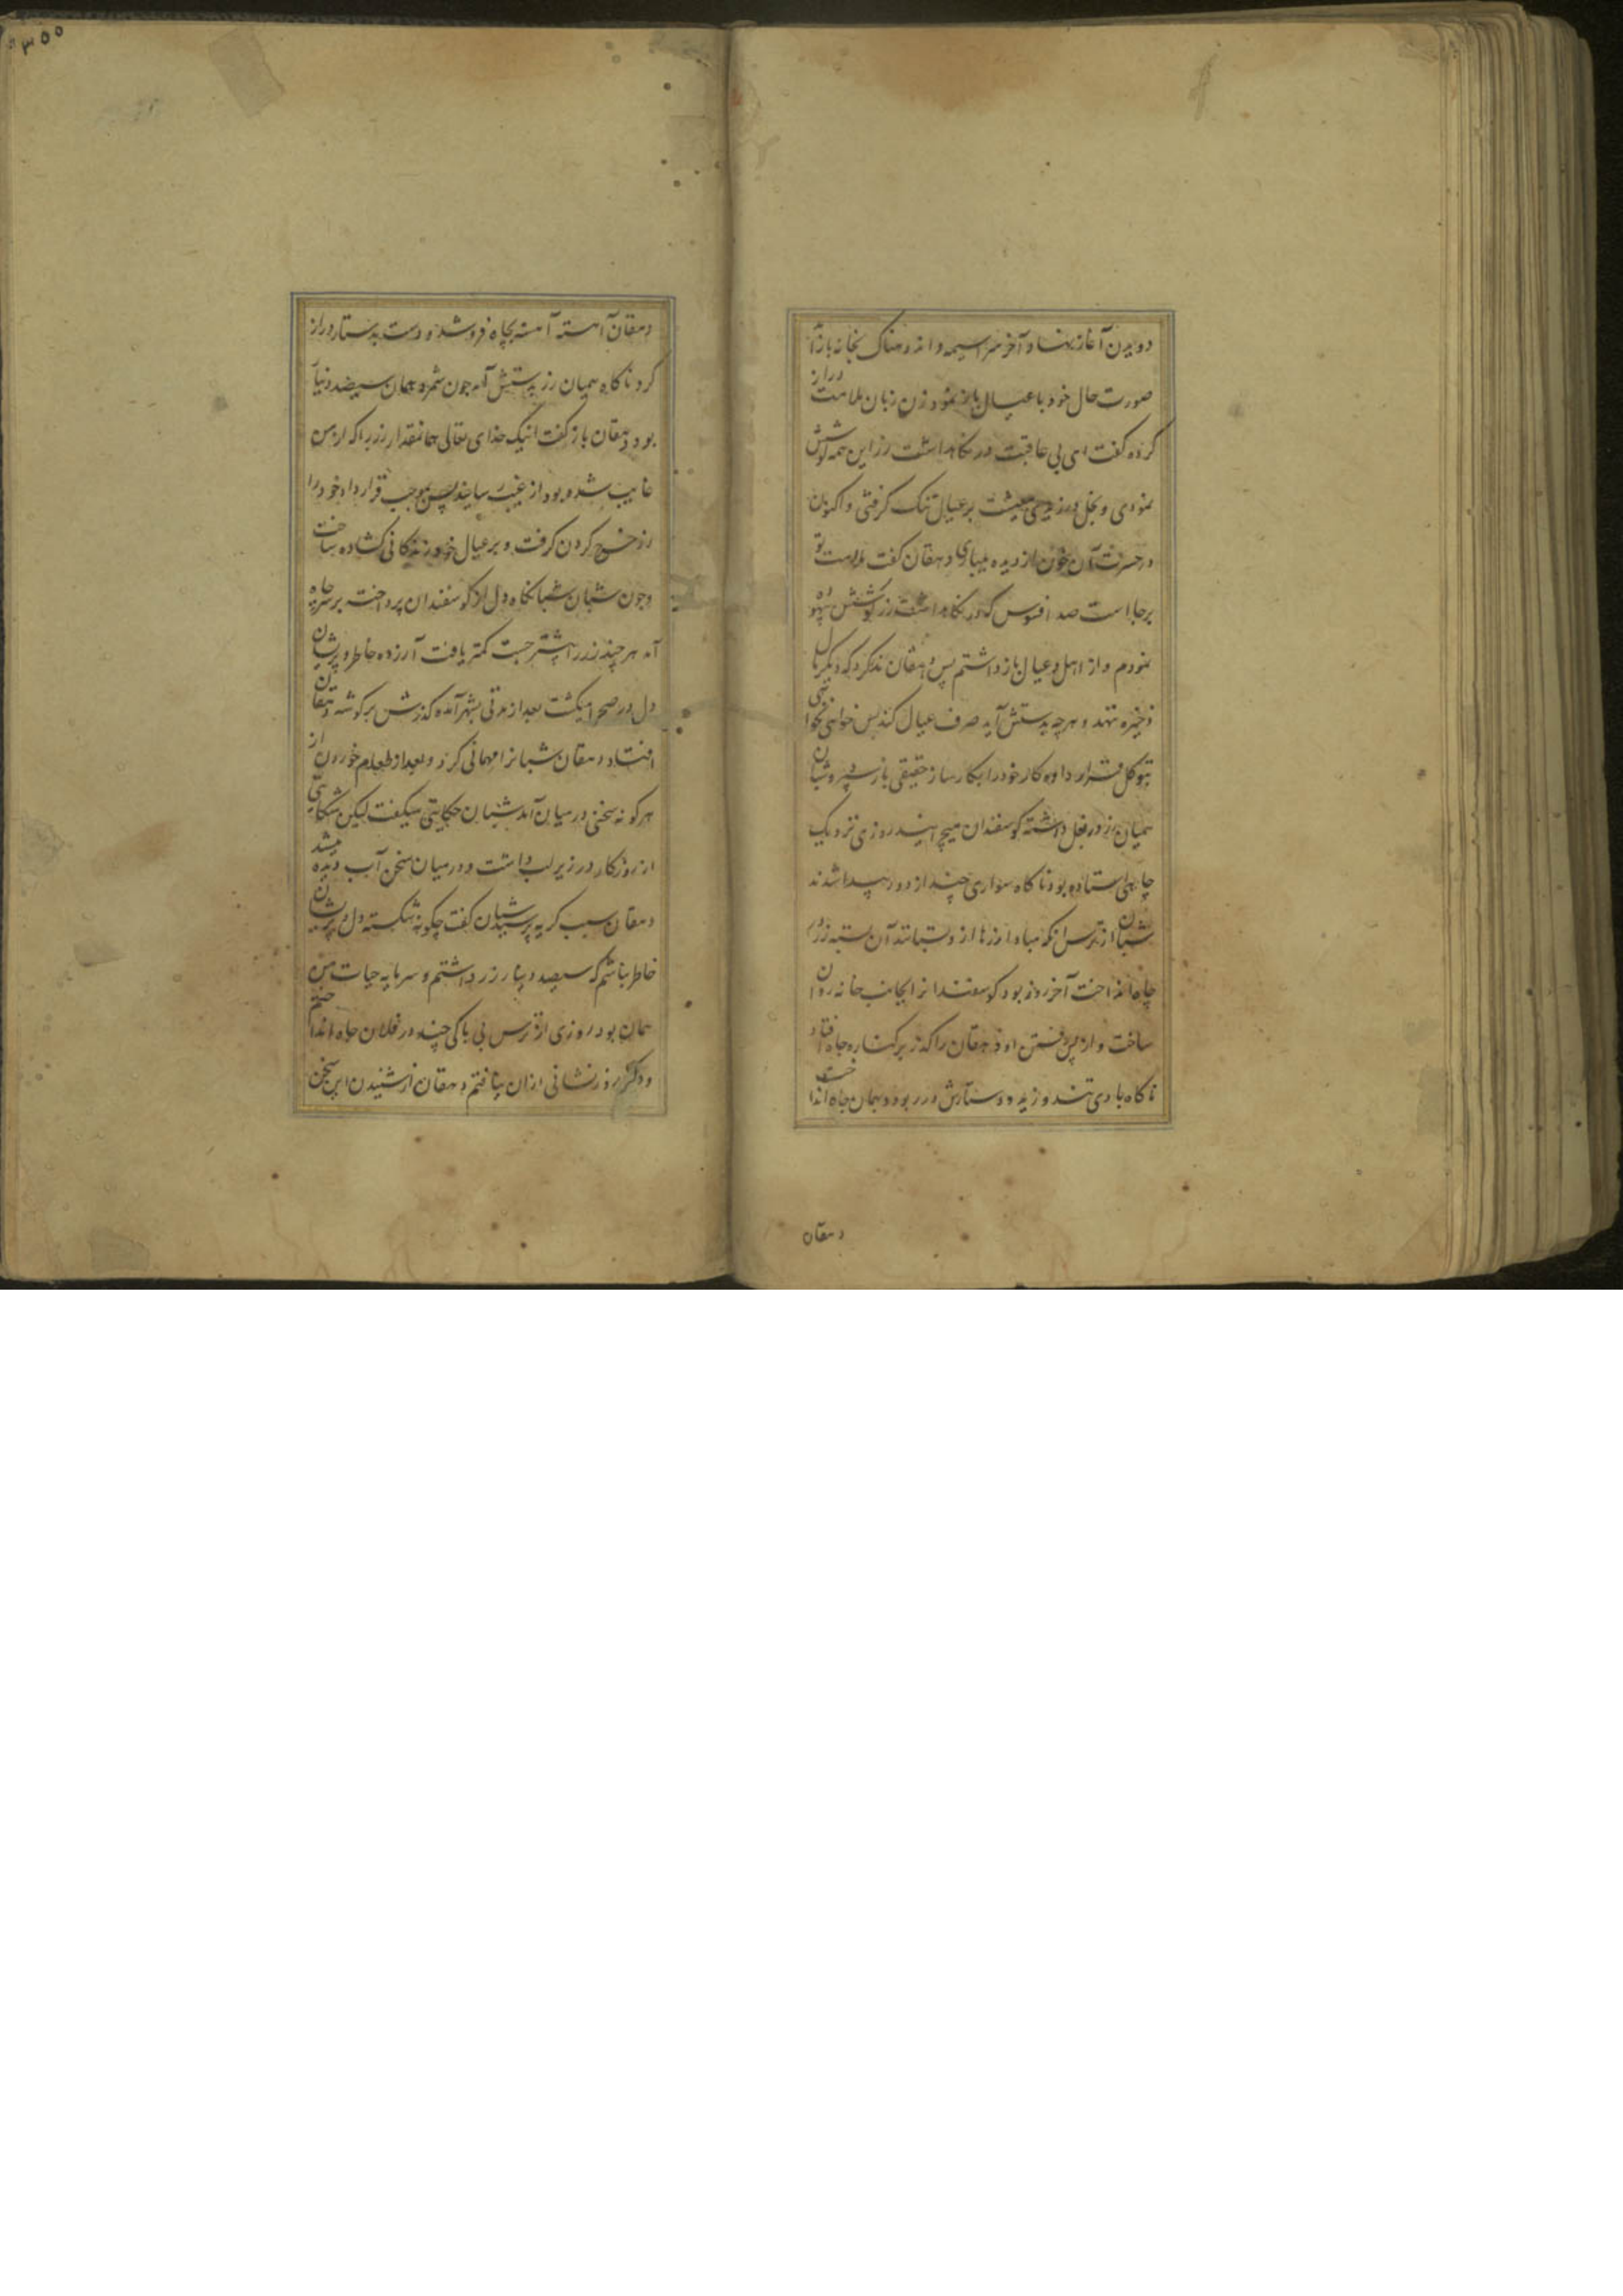 دویدن آغاز نهاد و آخر سراسیمه و اندوهناک بخانه باز آ
صورت حال خود با عیال باز نمود زن زبان ملامت دراز
کرده گفت ای بی عاقبت در نگاهداشت زر این همه کوشش
نمودی و بخل ورزیدی معیشت بر عیال تنک گرفتی و اکنون
در حسرت آن خون از دیده میباری دهقان گفت ملامت تو
برجا است صد افسوس که در نگاهداشت زر کوشش بیهوده
نمودم و از اهل و عیال باز داشتم پس دهقان نذر کرد که دیگر مال
ذخیره ننهد و هرچه بدستش آید صرف عیال کند پس خواهی نخواهی
بتوکل قرار داده کار خود را بکارساز حقیقی باز سپرد و شبان
همیان زر در بغل داشته کوسفندان میچرانید روزی نزدیک
چاهی استاده بود ناکاه سواری چند از دور پیدا شدند
شبان از ترس انکه مبادا زرها از وبستانند آن بسته زر در
چاه انداخت آخر روز بود کوسفندانرا بجانب خانه روان
ساخت و از پس رفتن او دهقان را کذر بر کناره چاه افتاد
ناکاه بادی تند وزید و دستارش در ربود و بهمان چاه انداخت
دهقان
۳۵۵
دهقان آهسته آهسته بچاه فروشد و دست بدستار دراز
کرد ناکاه همیان زر بدستش آمد چون شمرد همان سیصد دینار
بود دهقان باز گفت اینک خدای تعالی همانمقدار زر را که از من
غایب شده بود از غیب رسانید پس بموجب قرارداد خود را
زر خرج کردن کرفت و بر عیال خود زندکانی کشاده ساخت
و چون شبان شبانکاه دل از کوسفندان پرداخت بر سر چاه
آمد هر چند زر را بیشتر جست کمتر یافت آزرده خاطر و پریشان
دل در صحرا میکشت بعد از مدتی بشهر آمده کذرش بر کوشه دهقان
افتاد دهقان شبانرا مهمانی کرد و بعد از طعام خوردن از
هر کونه سخنی در میان آمد شبان حکایتی میکفت لیکن شکایتی
از روزکار در زیر لب داشت و در میان سخن آب دیده میشد
دهقان سبب کریه پرسید شبان گفت چکونه شکسته دل و پریشان
خاطر نباشم که سیصد دینار زر داشتم و سرمایه حیات من
همان بود روزی از ترس بی باکی چند در فلان چاه انداختم
و دیگر روز نشانی از آن نیافتم دهقان از شنیدن این سخن